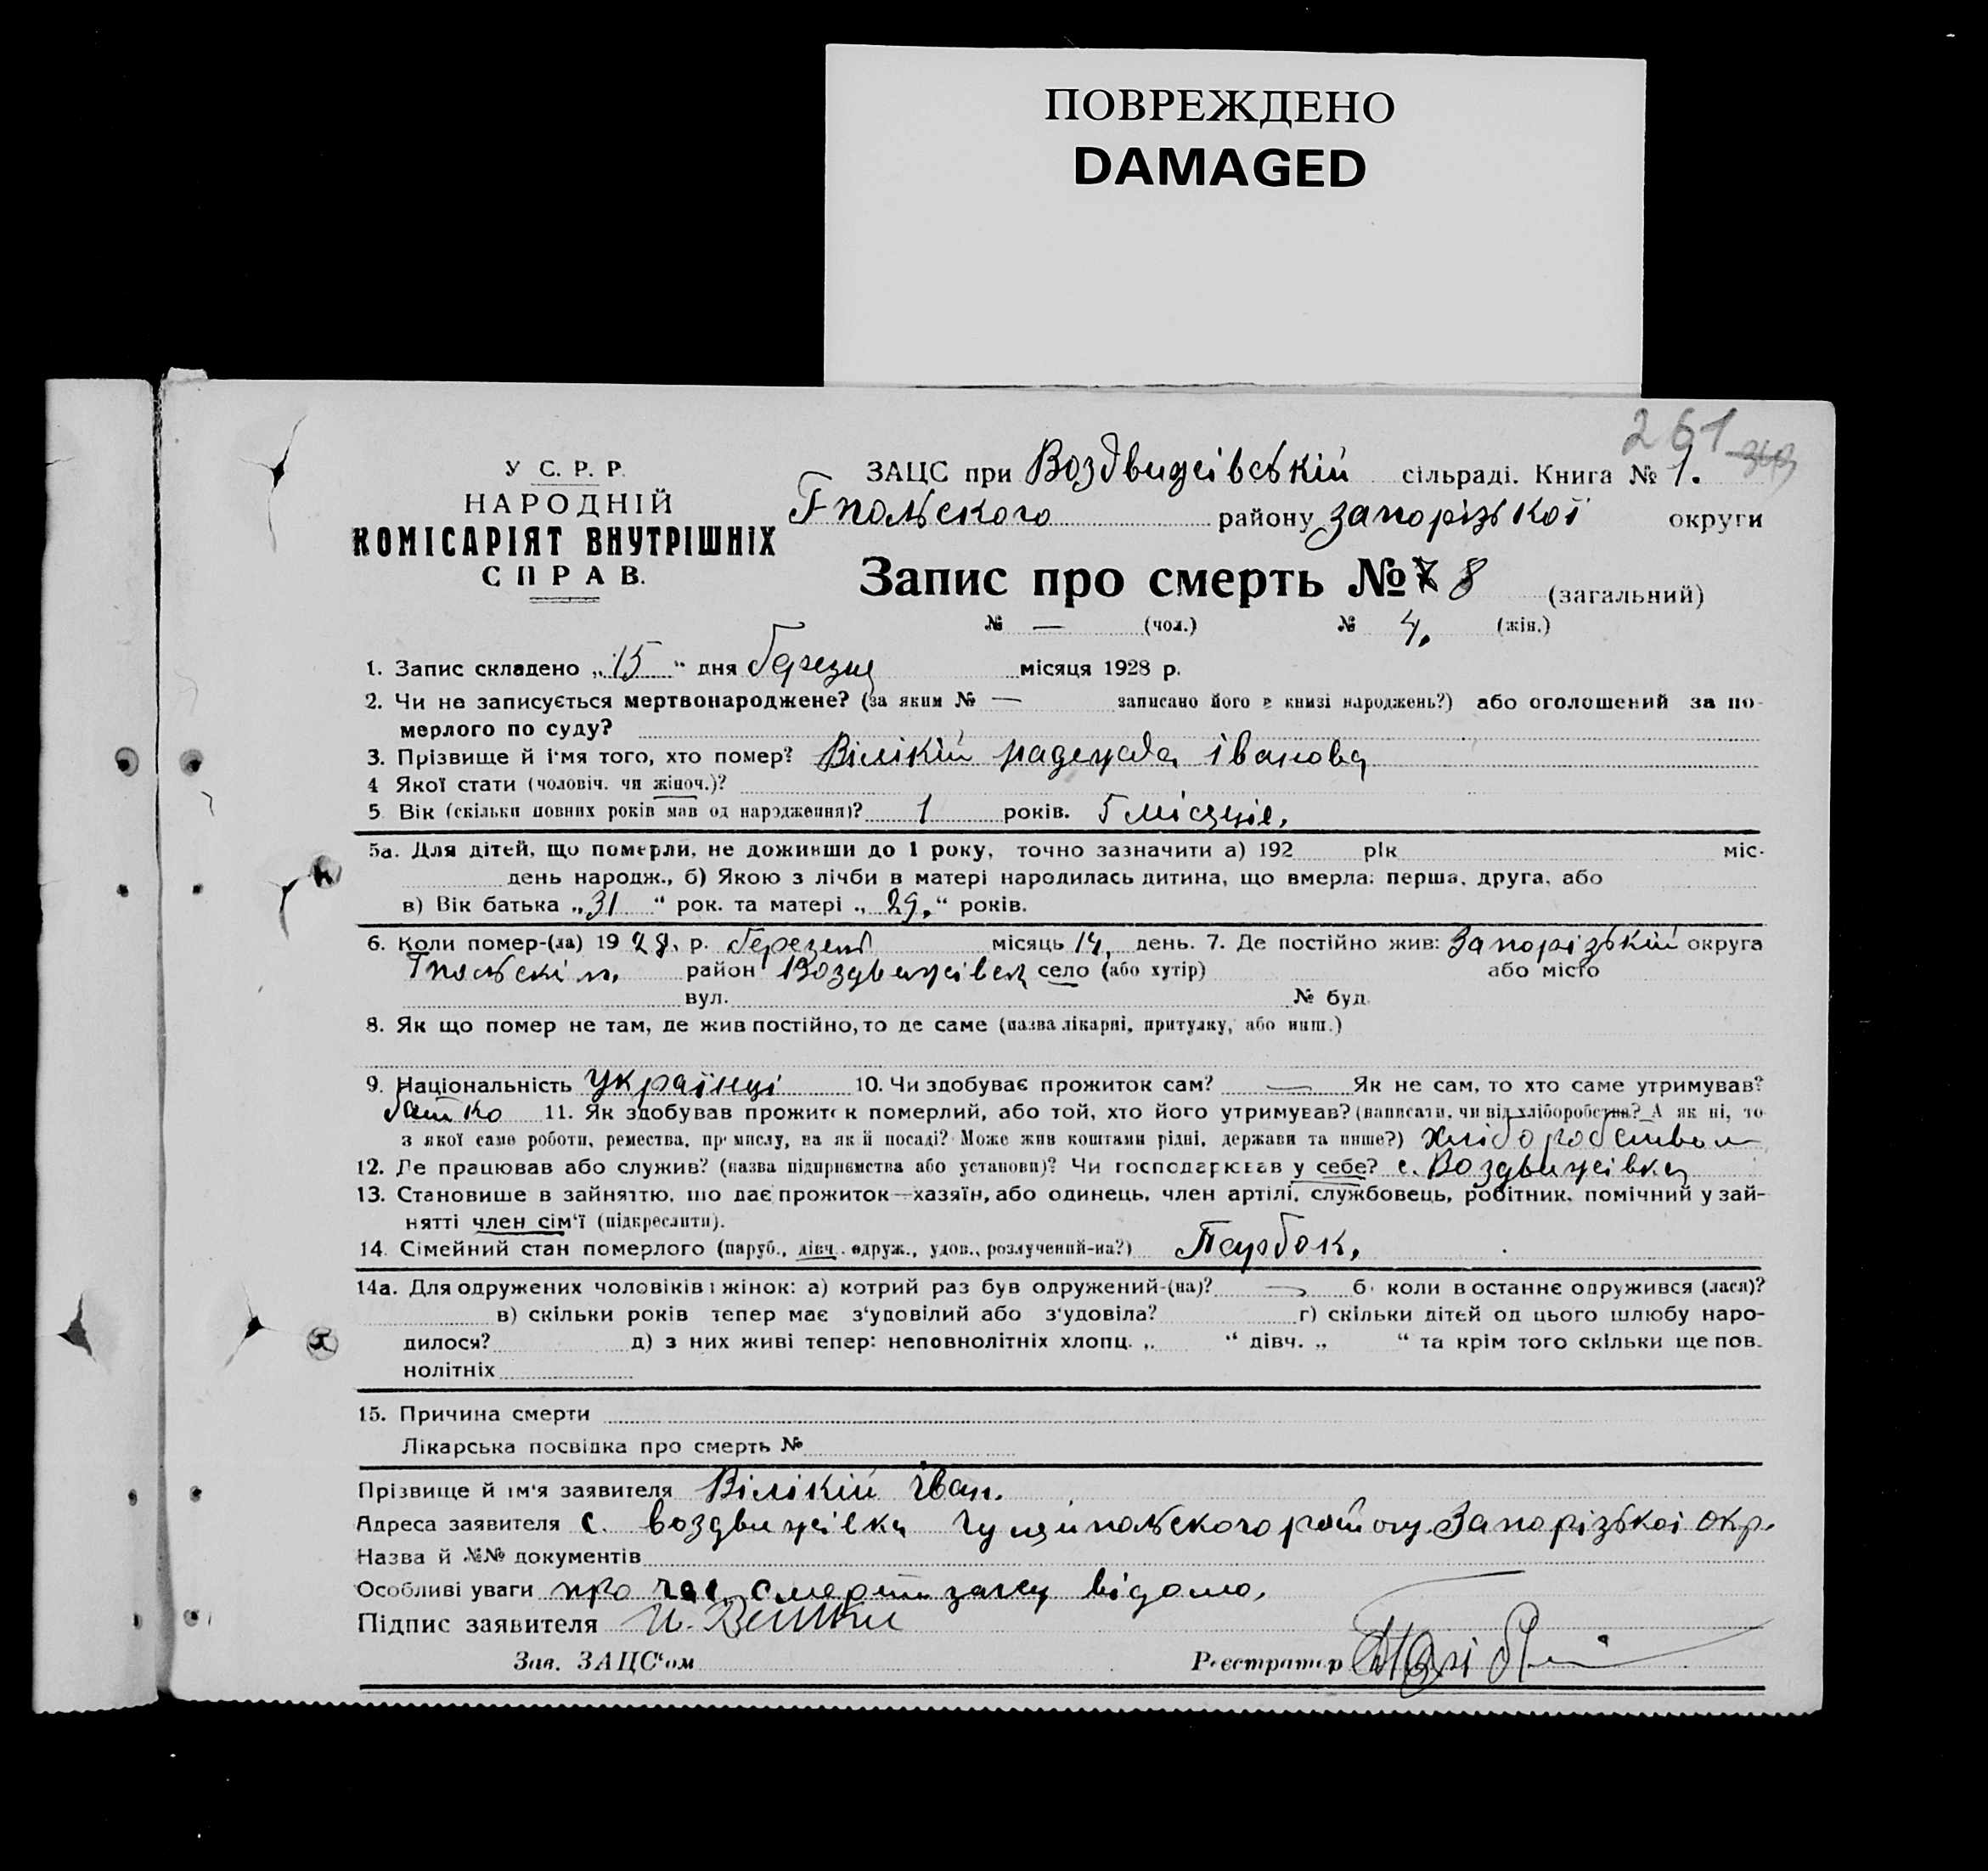 ПОВРЕЖДЕНО
DAMAGED
261
У С. Р. Р.
НАРОДНІЙ
КОМІСАРІЯТ ВНУТРІШНІХ
СПРАВ.
ЗАЦС при Воздвижівській сільраді. Книга № 1.
Гпольского району запорізької округи
Запис про смерть № 8 (загальний)
№ — (чол.) № 4. (жін.)
1. Запис складено „15“ дня березня місяця 1928 р.
2. Чи не записується мертвонароджене? (за яким № — записано його в книзі народжень?) або оголошений за по-
мерлого по суду?
3. Прізвище й ім'я того, хто помер? Вілікій надежда іванова
4 Якої стати (чоловіч. чи жіноч.)?
5. Вік (скільки повних років мав од народження)? 1 років. 5 місяців.
5а. Для дітей, що померли, не доживши до 1 року, точно зазначити а) 192 рік міс-
день народж., б) Якою з лічби в матері народилась дитина, що вмерла: перша, друга, або
в) Вік батька „31“ рок. та матері „29.“ років.
6. Коли помер-(ла) 1928. р. березень місяць 14, день. 7. Де постійно жив: Запорізькій округа
Гпольскім. район Воздвижівка село (або хутір) або місто
вул. № буд.
8. Як що помер не там, де жив постійно, то де саме (назва лікарні, притулку, або инш.)
9. Національність українці 10. Чи здобуває прожиток сам? — Як не сам, то хто саме утримував?
батько 11. Як здобував прожиток померлий, або той, хто його утримував? (написати, чи від хліборобства? А як ні, то
з якої саме роботи, ремества, промислу, на якій посаді? Може жив коштами рідні, держави та инше?) хліборобством
12. Де працював або служив? (назва підприємства або установи)? Чи господарював у себе? с. Воздвижівка
13. Становище в зайняттю, що дає прожиток—хазяїн, або одинець, член артілі, службовець, робітник, помічний у зай-
нятті член сім'ї (підкреслити).
14. Сімейний стан померлого (паруб., дівч. одруж., удов., розлучений-на?) Парбок.
14а. Для одружених чоловіків і жінок: а) котрий раз був одружений-(на)? — б) коли в останнє одружився (лася)?
в) скільки років тепер має з'удовілий або з'удовіла? г) скільки дітей од цього шлюбу наро-
дилося? д) з них живі тепер: неповнолітніх хлопц. „ “ дівч. „ “ та крім того скільки ще пов.
нолітніх
15. Причина смерти
Лікарська посвідка про смерть №
Прізвище й ім'я заявителя Вілікій Іван.
Адреса заявителя с. воздвижівка Гуляйпольского району. Запорізької окр.
Назва й №№ документів
Особливі уваги про час смерти загсу відомо.
Підпис заявителя
Зав. ЗАЦС'ом Реєстратор